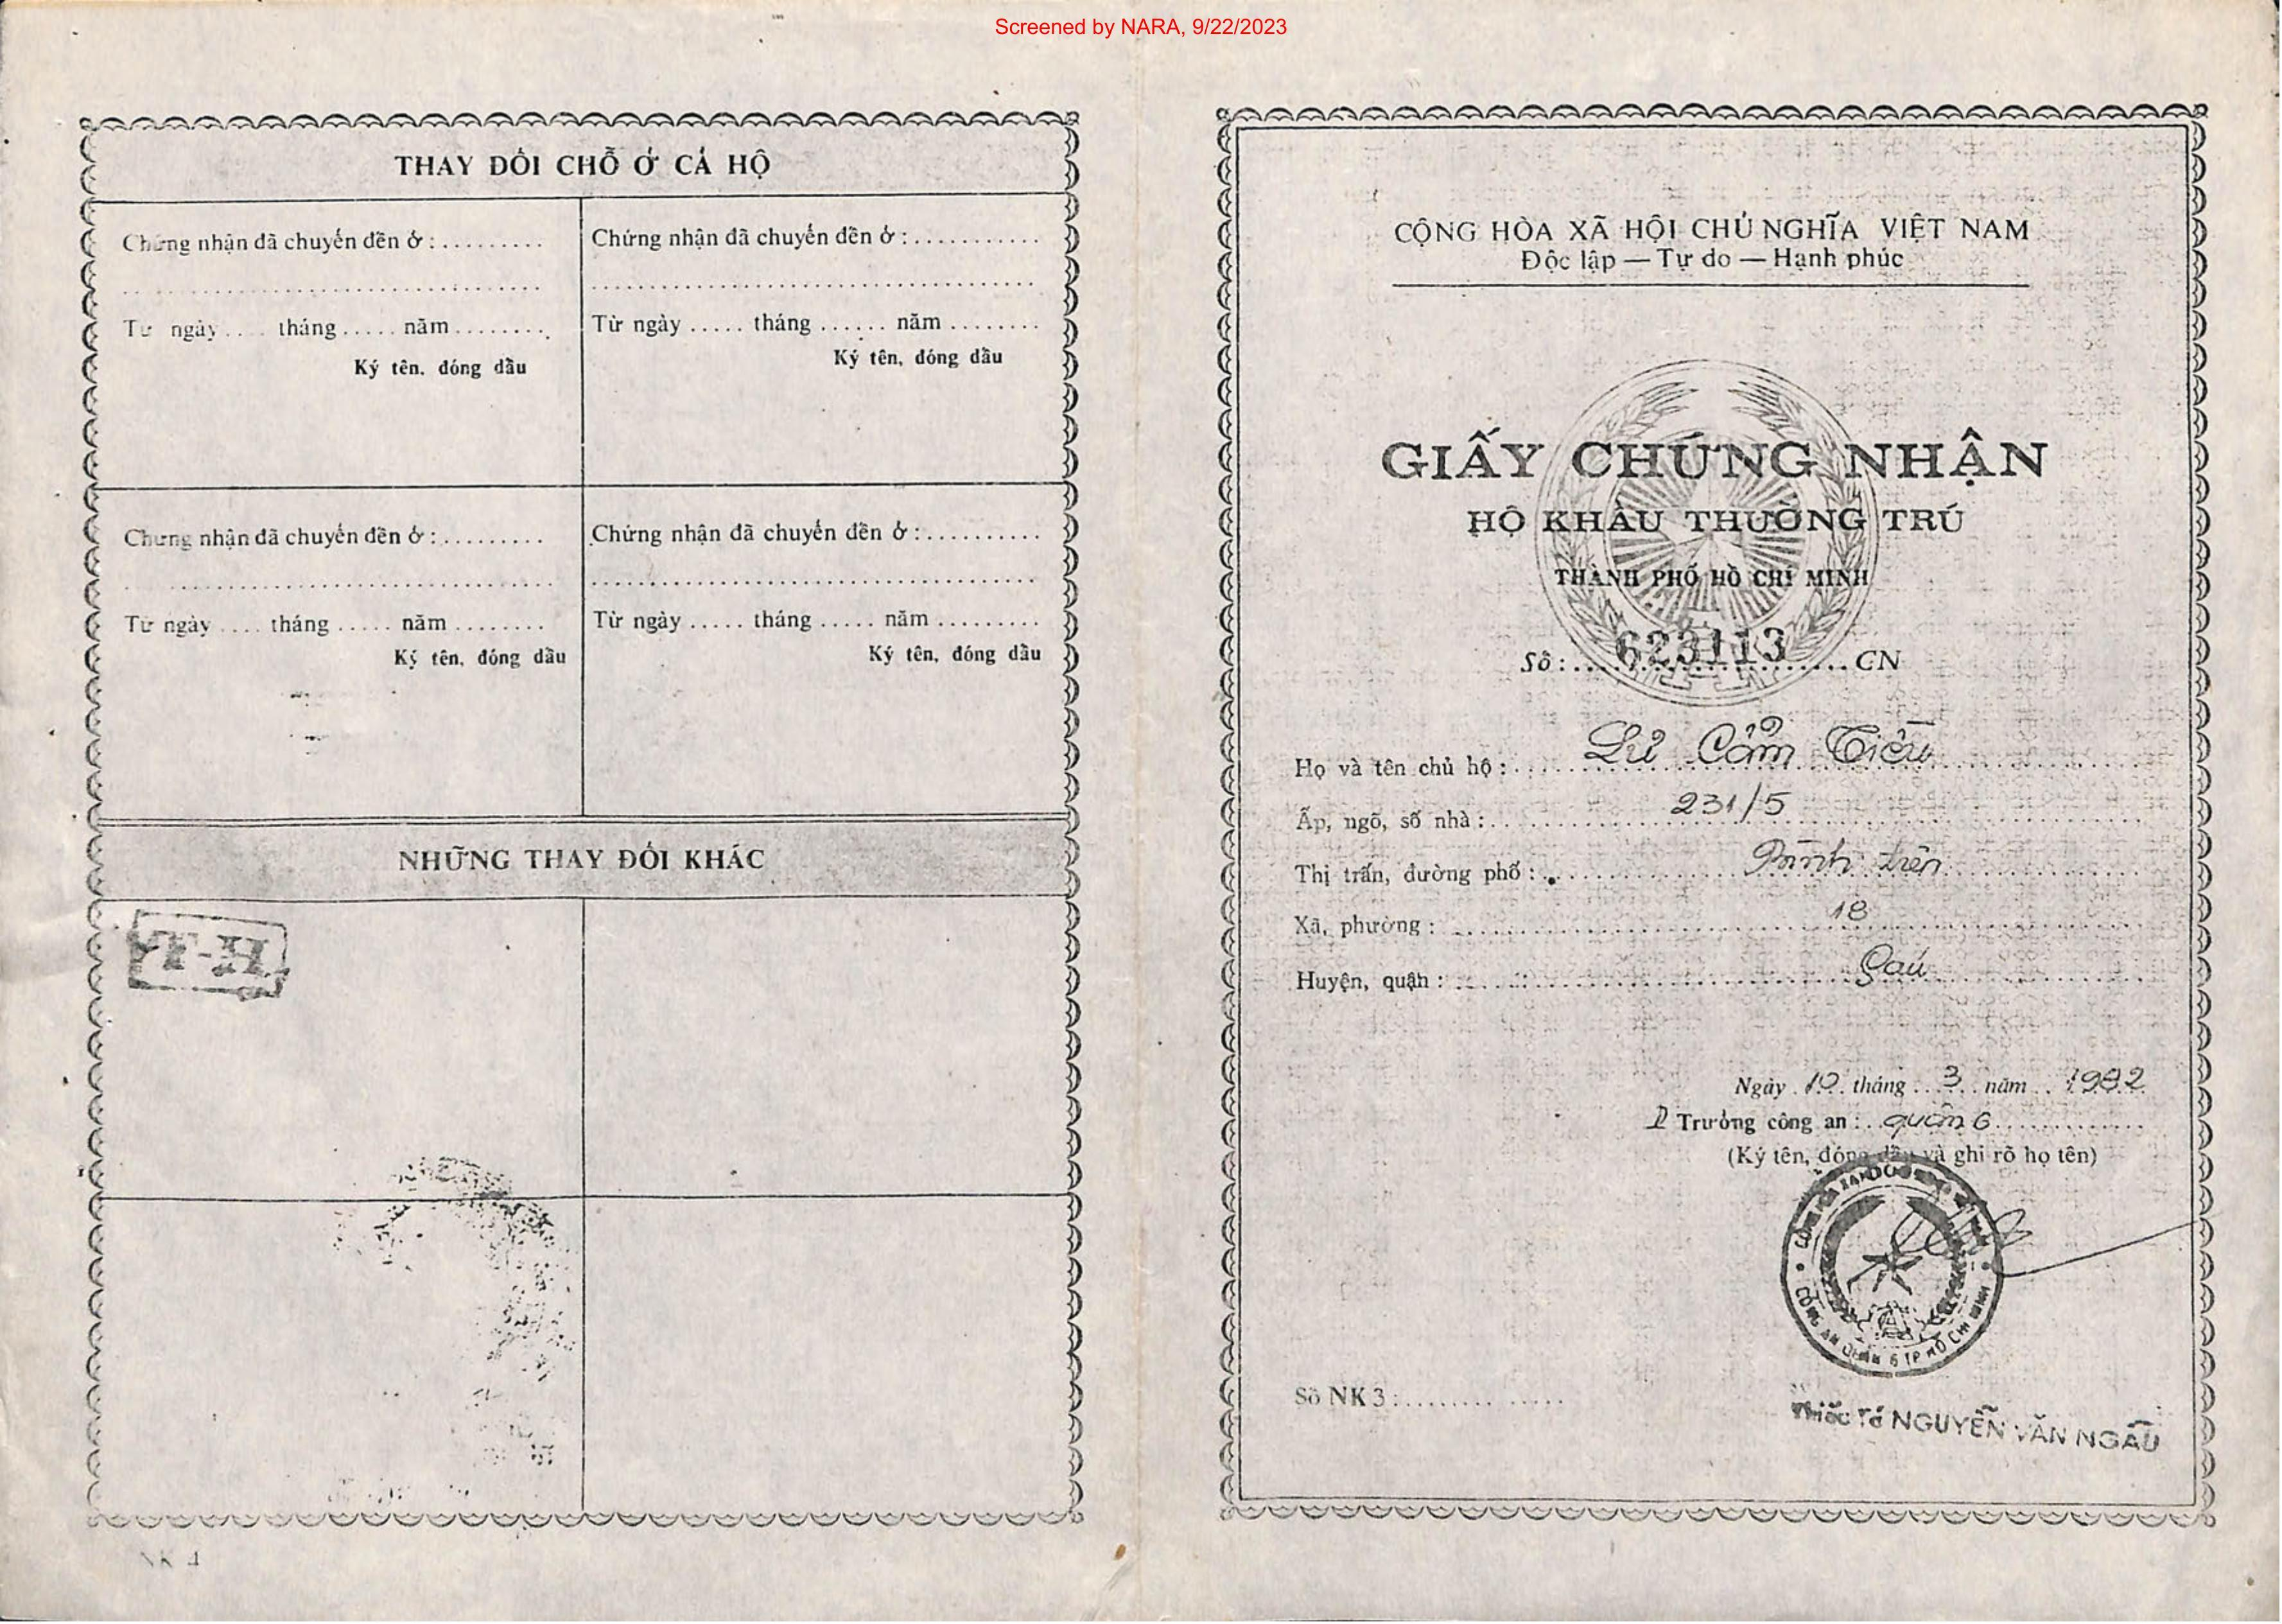 Screened by NARA, 9/22/2023
THAY ĐỔI CHỖ Ở CẢ HỘ
Chứng nhận đã chuyển đến ở : .........
Từ ngày .... tháng ..... năm ........
Ký tên, đóng dấu
Chứng nhận đã chuyển đến ở : ...........
Từ ngày ..... tháng ...... năm ........
Ký tên, đóng dấu
Chứng nhận đã chuyển đến ở : .........
Từ ngày .... tháng ..... năm ........
Ký tên, đóng dấu
Chứng nhận đã chuyển đến ở : ..........
Từ ngày ..... tháng ..... năm .........
Ký tên, đóng dấu
NHỮNG THAY ĐỔI KHÁC
NK 4
CỘNG HÒA XÃ HỘI CHỦ NGHĨA VIỆT NAM
Độc lập — Tự do — Hạnh phúc
GIẤY CHỨNG NHẬN
HỘ KHẨU THƯỜNG TRÚ
THÀNH PHỐ HỒ CHÍ MINH
Số : 623113 CN
Họ và tên chủ hộ : Lư Cẩm Tiều
Ấp, ngõ, số nhà : 231/5
Thị trấn, đường phố : Bình tiên
Xã, phường : 18
Huyện, quận : Sáu
Ngày 10 tháng 3 năm 1982
Trưởng công an : quận 6
(Ký tên, đóng dấu và ghi rõ họ tên)
CÔNG AN QUẬN 6 TP HỒ CHÍ MINH
Số NK 3 : ......... .....
Thiếu Tá NGUYỄN VĂN NGẦU